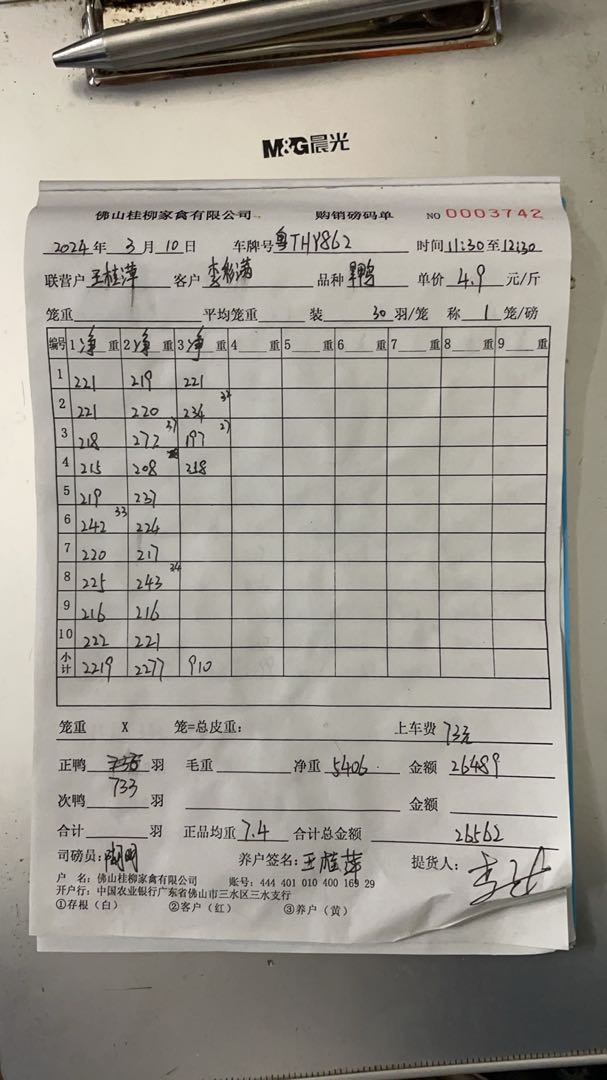 M&G晨光
佛山桂柳家禽有限公司 购销磅码单 NO 0003742
2024年 3月 10日 车牌号 粤THY862 时间 11:30 至 12:30
联营户 王桂萍 客户 李彩满 品种 单价 4.9 元/斤
笼重 平均笼重 装 30 羽/笼 称 1 笼/磅
编号 1 净 重 2 净 重 3 净 重 4 重 5 重 6 重 7 重 8 重 9 重
1 221 219 221
2 221 220 234 32
3 218 272 37 197 27
4 215 208 218
5 219 237
6 242 33 224
7 220 217
8 225 243 34
9 216 216
10 222 221
小计 2219 2277 910
笼重 X 笼=总皮重: 上车费 73元
正鸭 735 羽 毛重 净重 5406 金额 26489
次鸭 733 羽 金额
合计 羽 正品均重 7.4 合计总金额 26562
司磅员: 养户签名: 王桂萍 提货人:
户 名: 佛山桂柳家禽有限公司 账号: 444 401 010 400 169 29
开户行: 中国农业银行广东省佛山市三水区三水支行
①存根(白) ②客户(红) ③养户(黄)